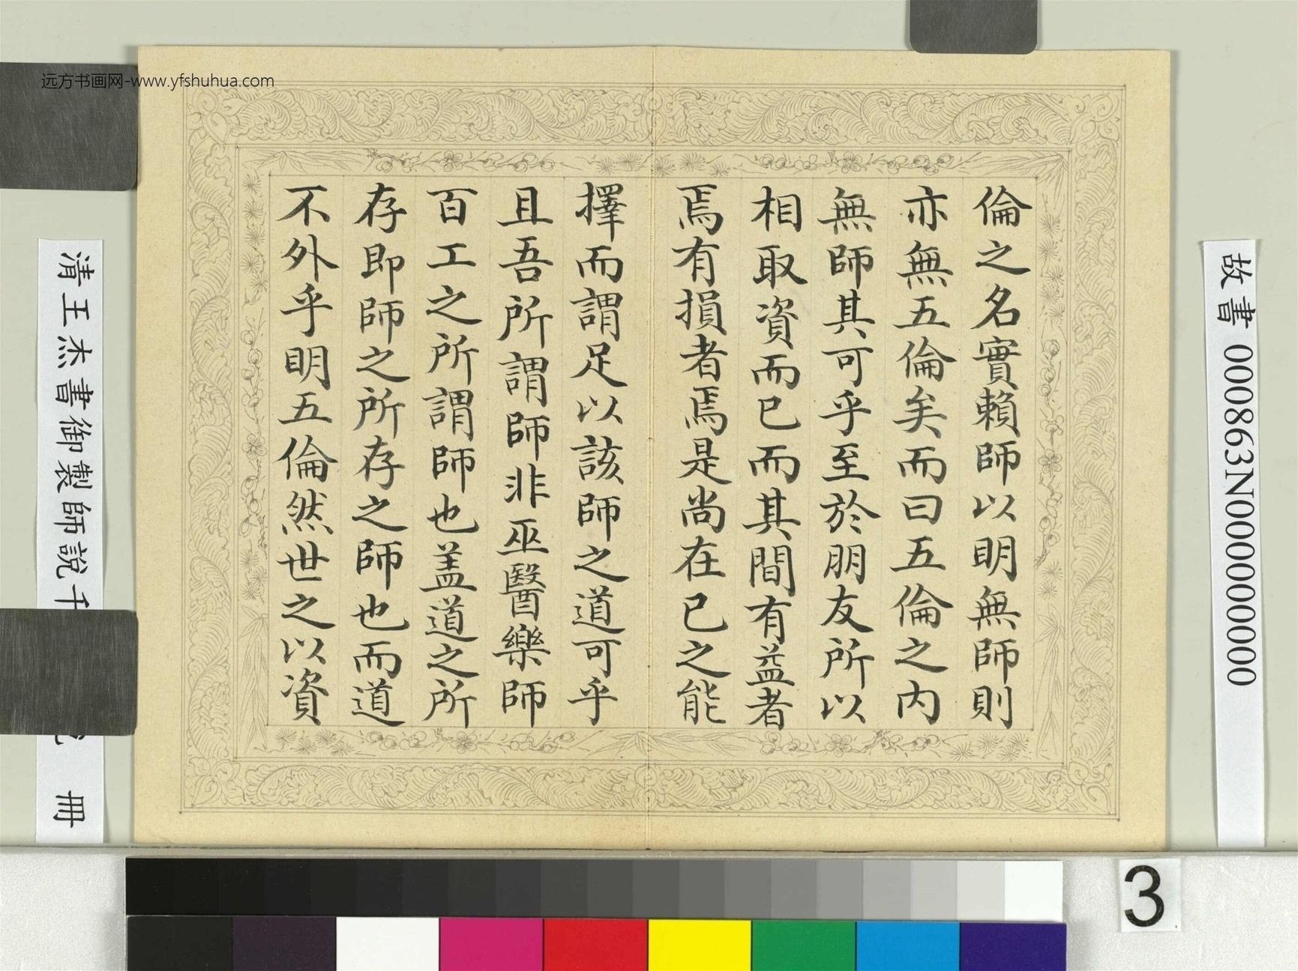 远方书画网-www.yfshuhua.com
倫之名實賴師以明無師則
亦無五倫矣而曰五倫之内
無師其可乎至於朋友所以
相取資而已而其間有益者
焉有損者焉是尚在已之能
擇而謂足以該師之道可乎
且吾所謂師非巫醫樂師
百工之所謂師也盖道之所
存即師之所存之師也而道
不外乎明五倫然世之以資
故書 000863N000000000
清王杰書御製師說 冊
3